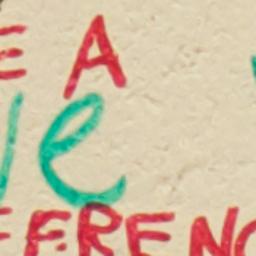 E A
e
FERENC